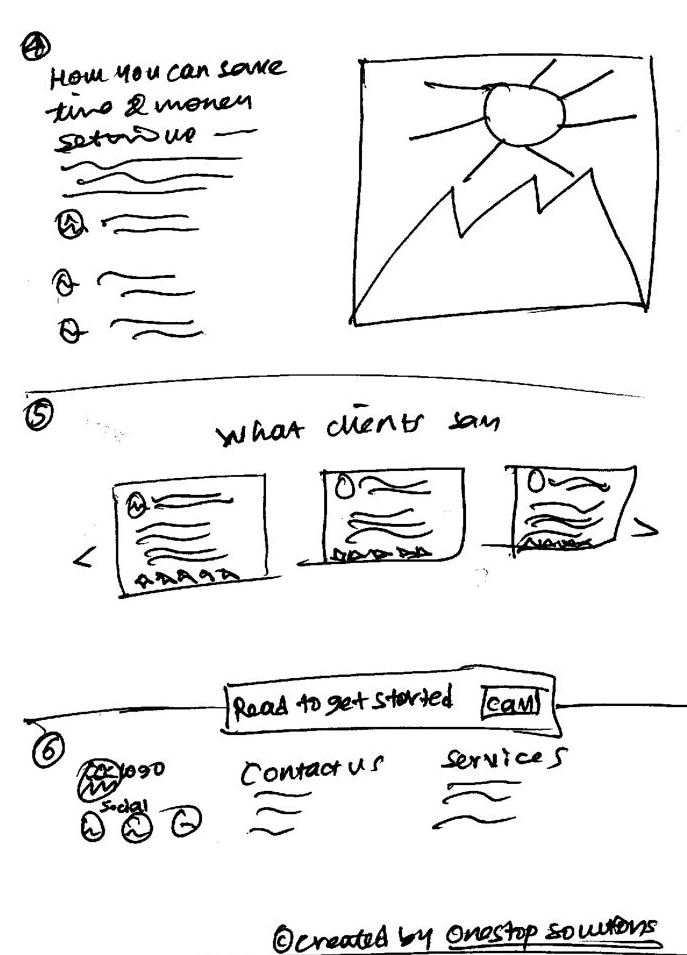 4
How you can save
time & money
5
What clients say
Read to get started
6
logo Contact us services
social
© created by onestop solutions